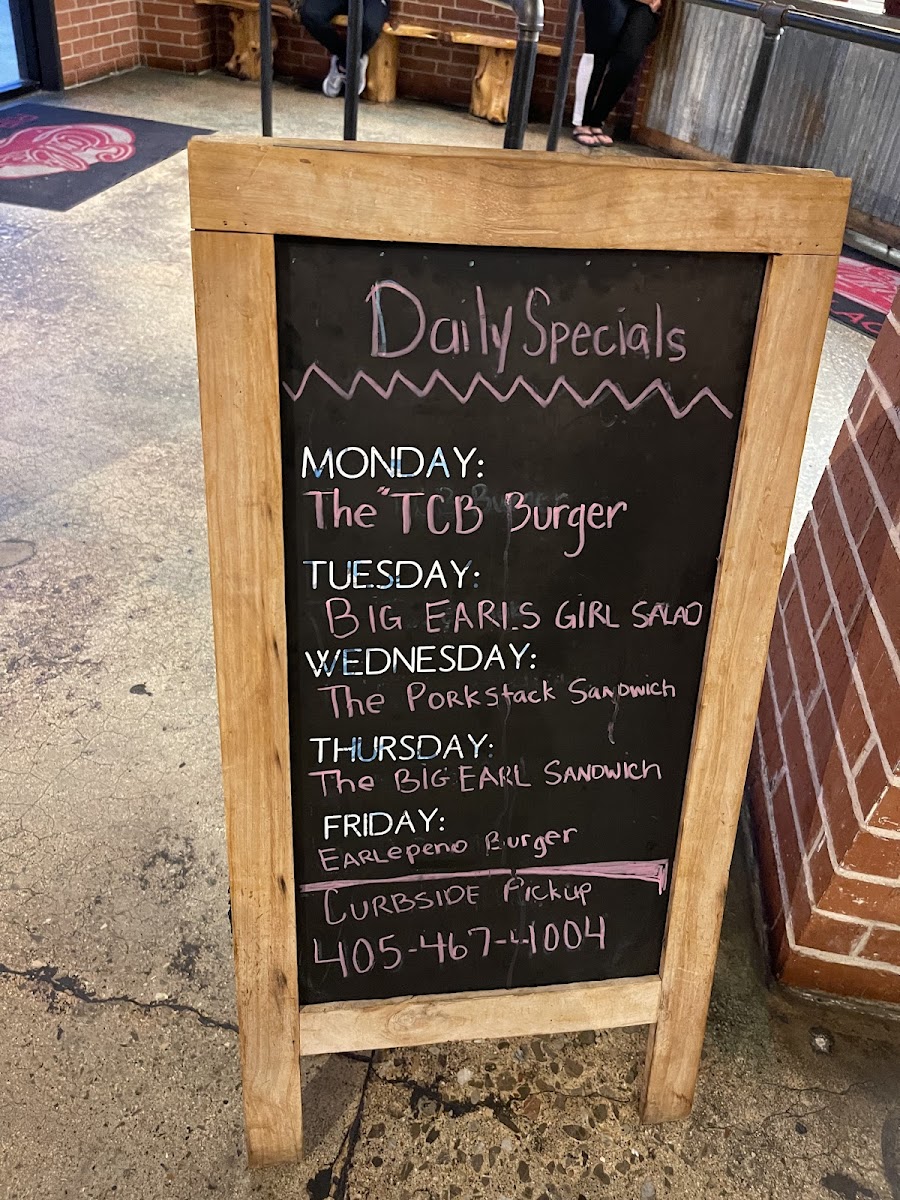 Daily Specials
MONDAY:
The "TCB Burger
TUESDAY:
BIG EARLS GIRL SALAD
WEDNESDAY:
The PORKStack SANDWich
THURSDAY:
The BIG EARL SANDWich
FRIDAY:
EARLepeno Burger
CURBSIDE Pickup
405-467-4004